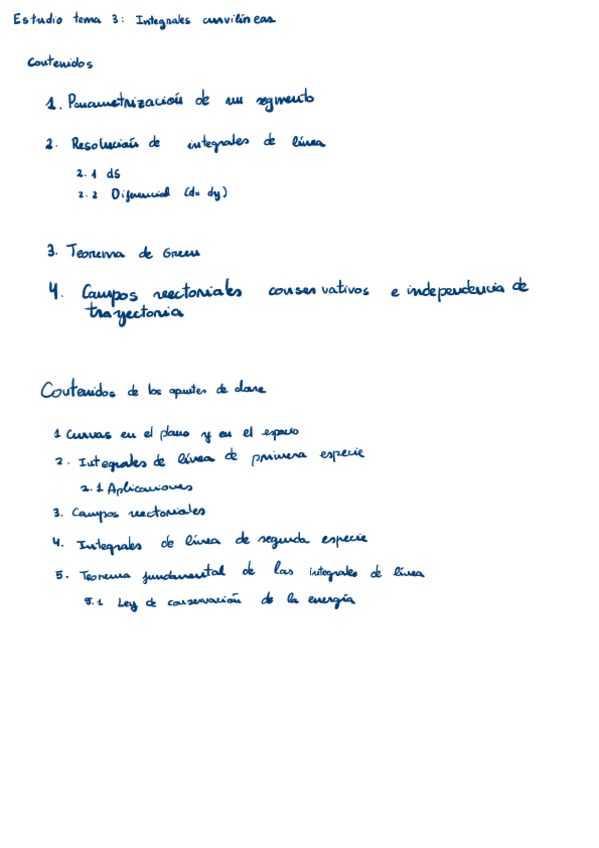 Estudio tema 3: Integrales curvilíneas
Contenidos
1. Parametrización de un segmento
2. Resolución de integrales de línea
2.1 dS
2.2 Diferencial (dx dy)
3. Teorema de Green
4. Campos vectoriales conservativos e independencia de
trayectoria
Contenidos de los apuntes de clase
1 Curvas en el plano y en el espacio
2. Integrales de línea de primera especie
2.1 Aplicaciones
3. Campos vectoriales
4. Integrales de línea de segunda especie
5. Teorema fundamental de las integrales de línea
5.1 Ley de conservación de la energía